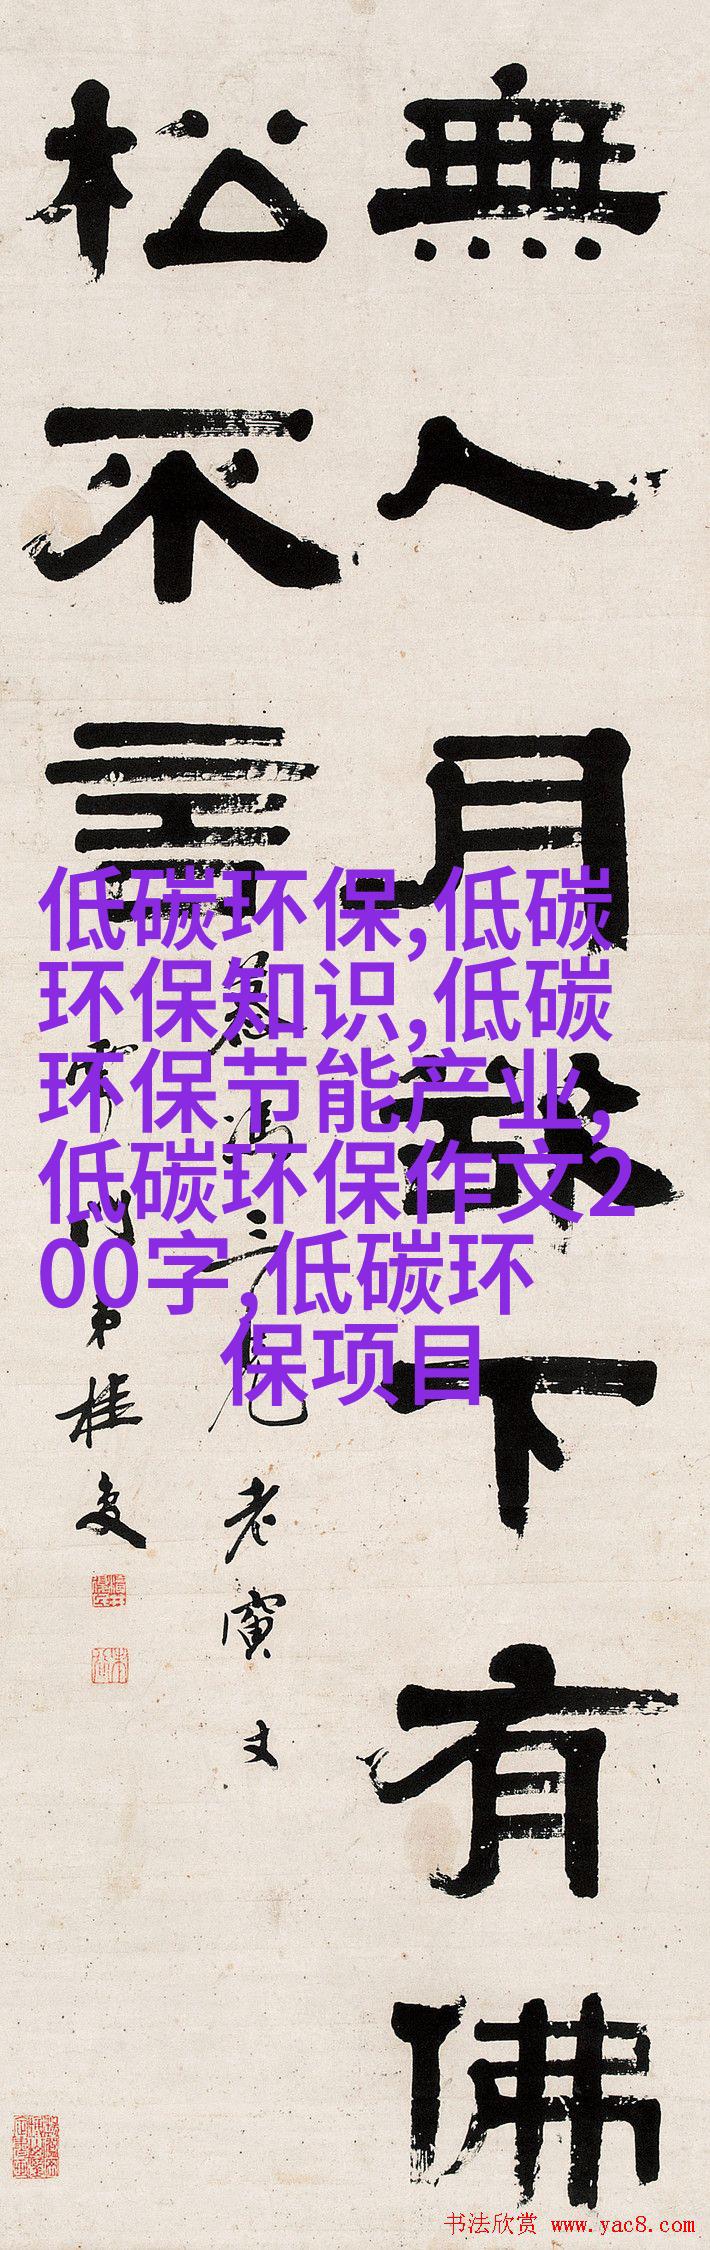 無人月下有佛
松不言
三兄老寅丈
門弟桂
低碳环保,低碳
环保知识,低碳
环保节能产业,
低碳环保作文2
00字,低碳环
保项目
书法欣赏 www.yac8.com